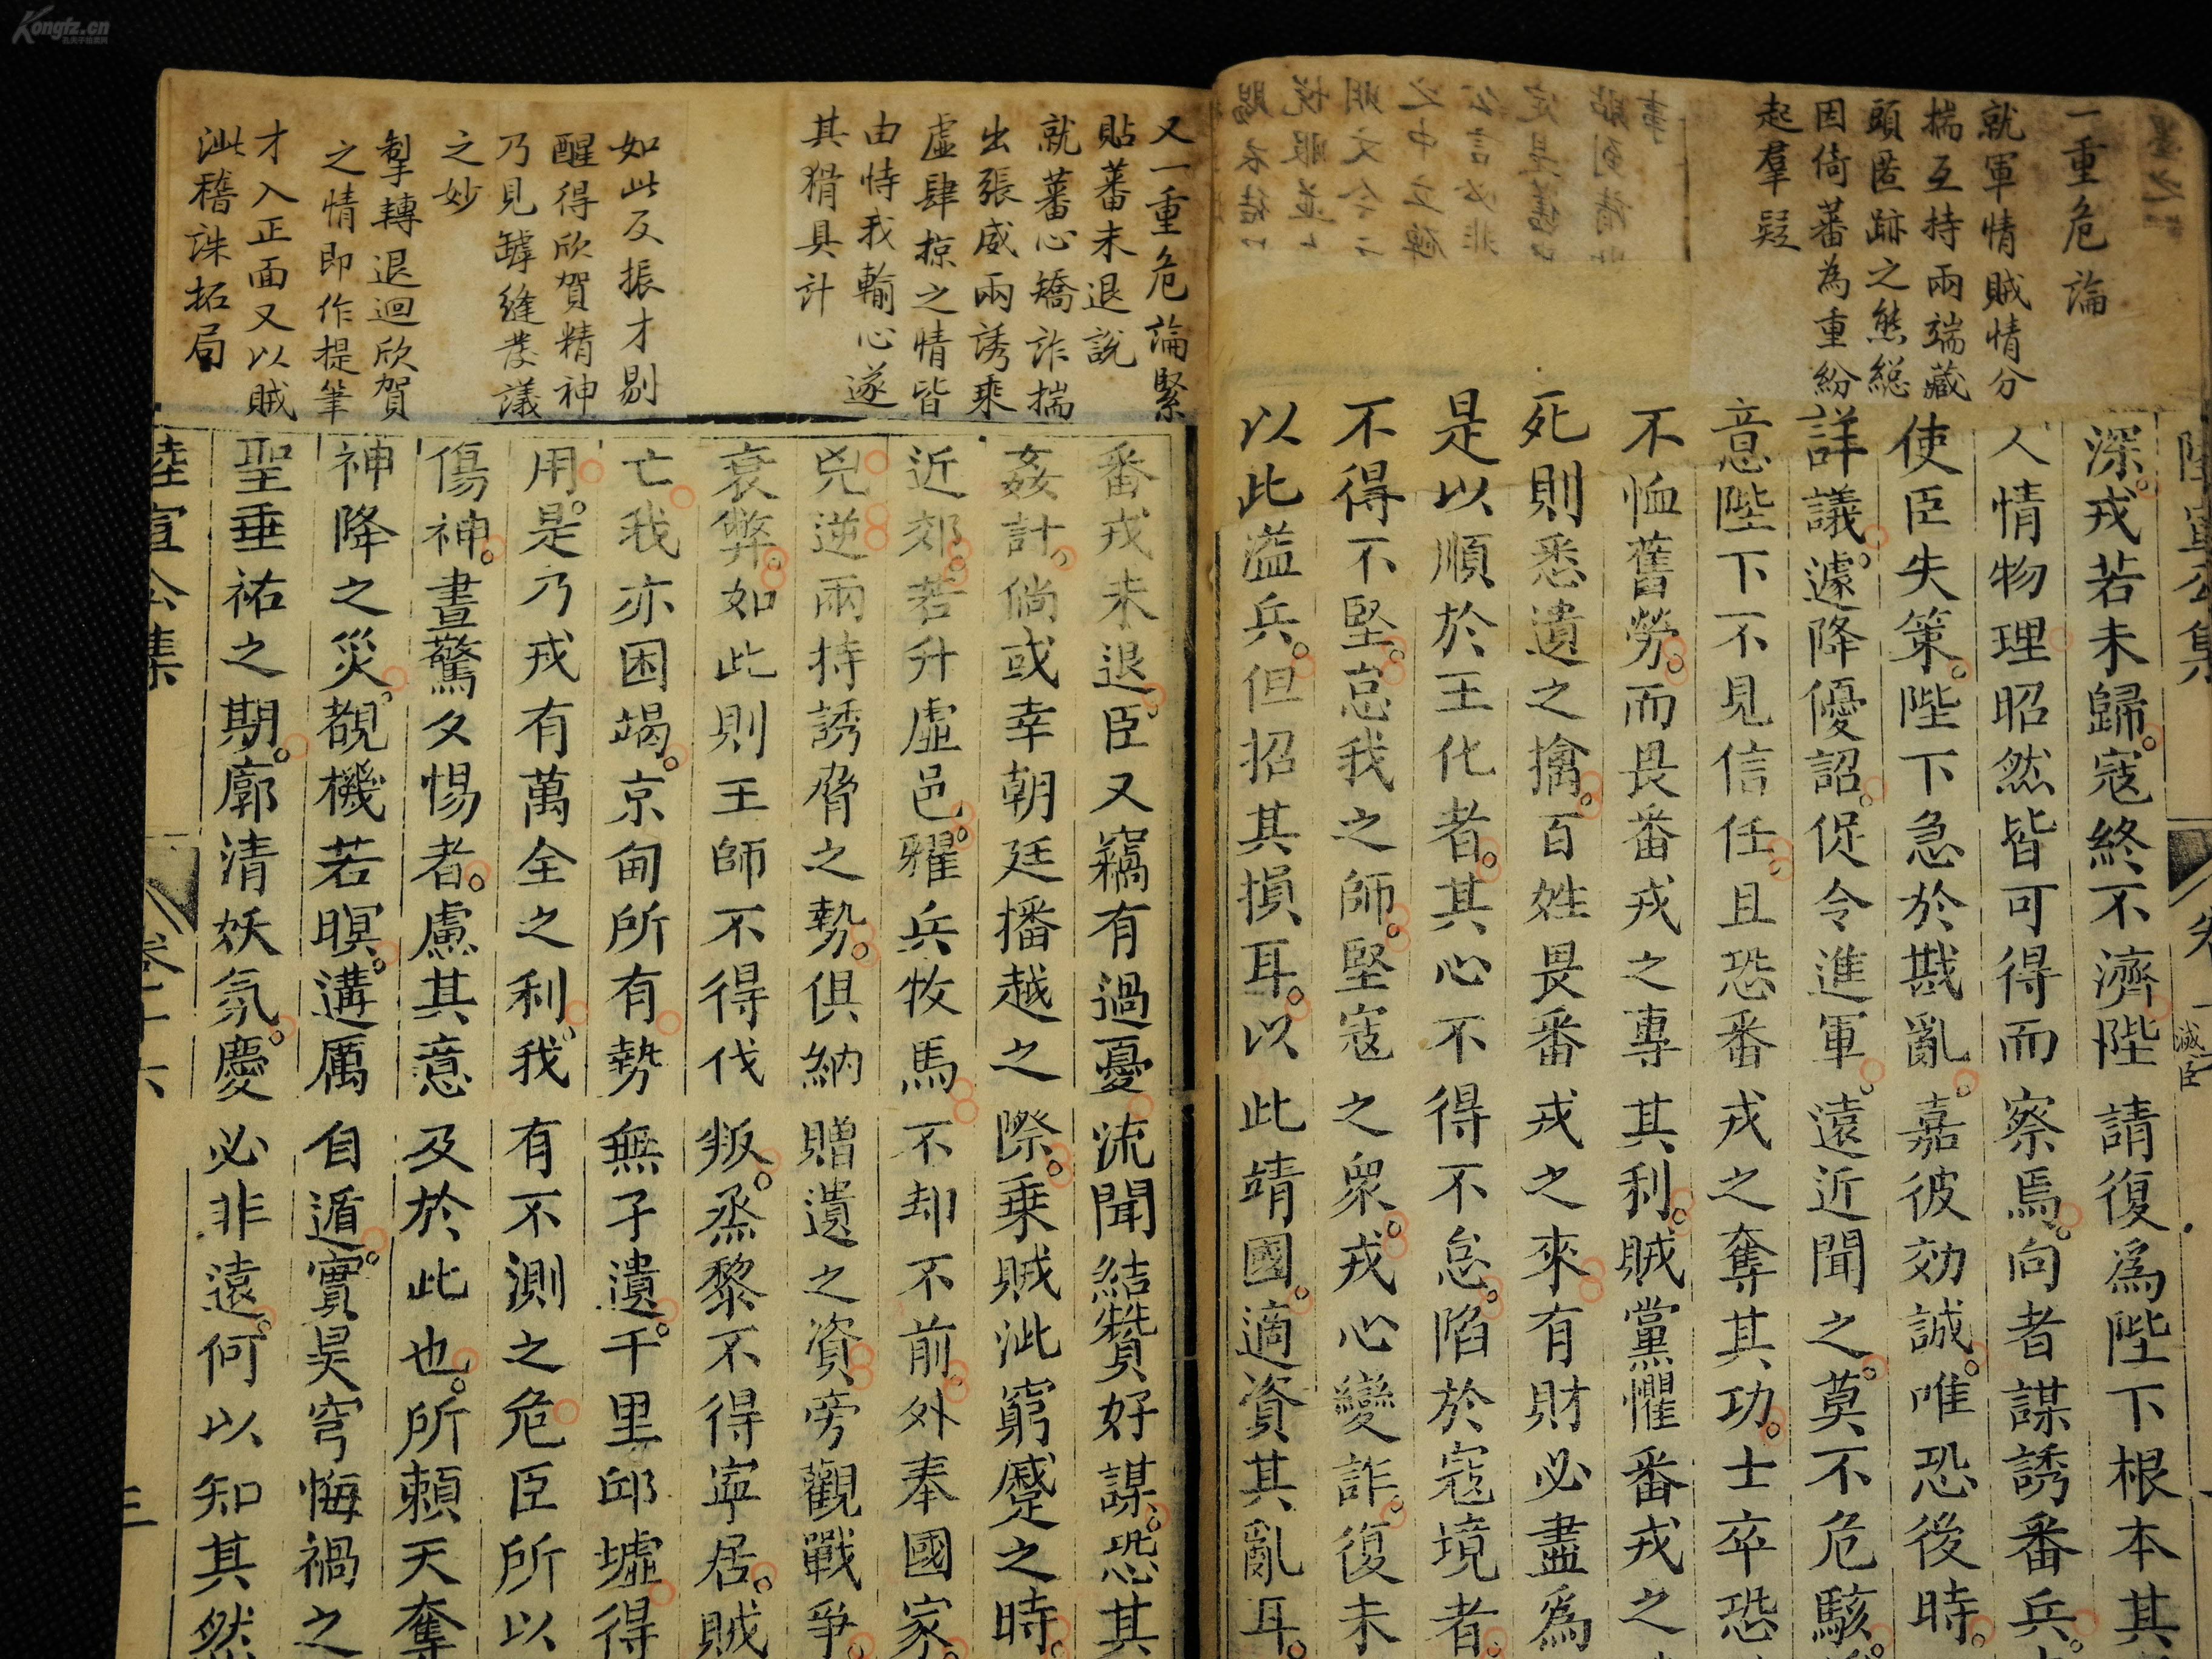 一重危論
就軍情賊情分
揣互持兩端藏
頭匿跡之態縂
因倚蕃為重紛
起羣疑
深戎若未歸寇終不濟陛請復爲陛下根本其
人情物理昭然皆可得而察焉向者謀誘番兵
使臣失策陛下急於戡亂嘉彼効誠唯恐後時
詳議遽降優詔促令進軍遠近聞之莫不危駭
意陛下不見信任且恐番戎之奪其功士卒恐
不恤舊勞而畏番戎之專其利賊黨懼番戎之
死則悉遺之擒百姓畏番戎之來有財必盡爲
是以順於王化者其心不得不怠陷於寇境者
不得不堅怠我之師堅寇之衆戎心變詐復未
以此溢兵但招其損耳以此靖國適資其亂耳
又一重危論緊
貼蕃未退説
就蕃心矯詐揣
出張威兩誘乘
虛肆掠之情皆
由恃我輸心遂
其猾具計
如此反振才剔
醒得欣賀精神
乃見罅縫發議
之妙
掣轉退迴欣賀
之情即作提筆
才入正面又以賊
泚稽誅拓局
番戎未退臣又竊有過憂流聞結贊好謀恐其
姦計倘或幸朝廷播越之際乗賊泚窮蹙之時
近郊若升虛邑耀兵牧馬不却不前外奉國家
兇逆兩持誘脅之勢俱納贈遺之資旁觀戰爭
衰弊如此則王師不得伐叛烝黎不得寧居賊
亡我亦困竭京甸所有勢無孑遺千里邱墟得
用是乃戎有萬全之利我有不測之危臣所以
傷神晝驚夕惕者慮其意及於此也所賴天奪
神降之災覩機若暝遘厲自遁實昊穹悔禍之
聖垂祐之期廓清妖氛慶必非遠何以知其然
陸宣公集
卷十六
三
Kongfz.cn